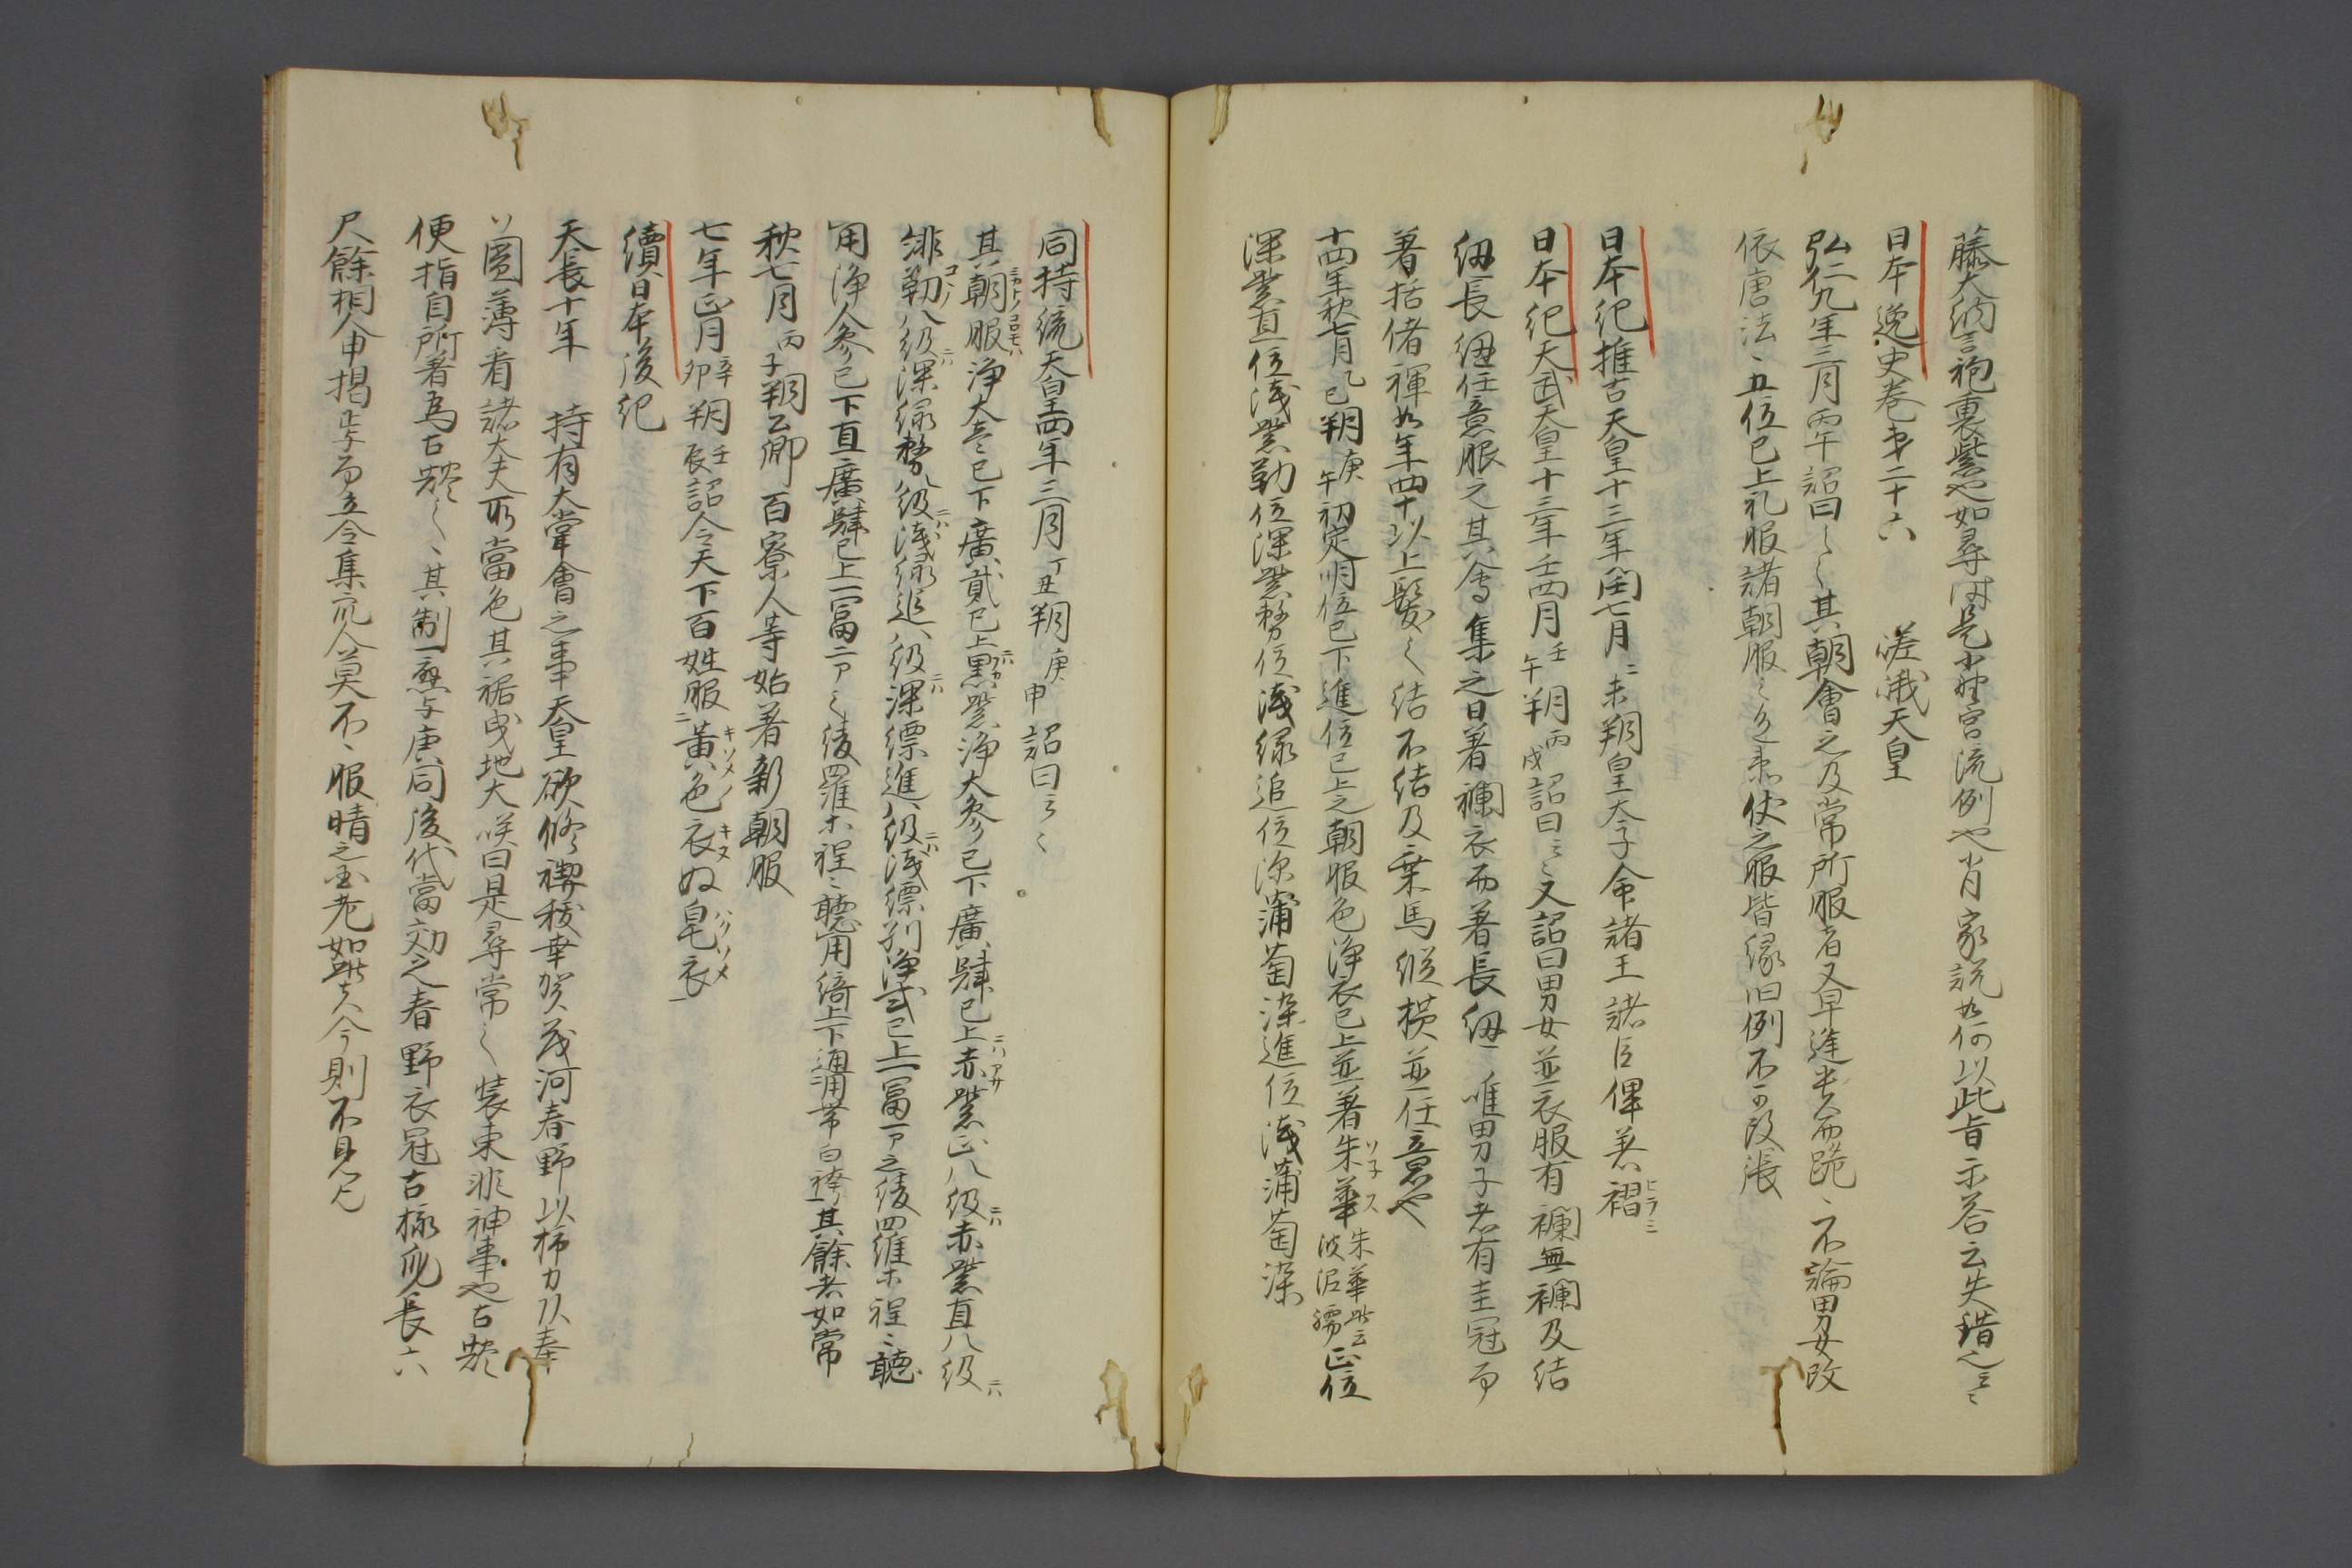 藤大納言袍裏紫也如尋問是小野宮流例也肖家説如何以此旨示答云失錯之云々
日本逸史巻第二十六　嵯峨天皇
弘仁九年三月丙午詔曰云々其朝會之及常所服者又卑逢貴而跪、不論男女改
依唐法、五位已上礼服諸朝服之色衛仗之服皆緣旧例不可改張
日本紀推古天皇十三年閏七月己未朔皇太子命諸王諸臣俾著褶ヒラミ
日本紀天武天皇十三年壬四月壬午朔丙戌詔曰云々又詔曰男女並衣服有襴無襴及結
紐長紐任意服之其會集之日著襴衣而著長紐唯男子者有圭冠而
著括緒褌女年四十以上髪之結不結及乗馬縦横並任意也
十四年秋七月乙巳朔庚午初定明位已下進位已上之朝服色浄衣已上並著朱華ソネス朱華此云波泥孺正位
深紫直位浅紫勤位深紫務位浅緑追位深蒲萄染進位浅蒲萄染
同持統天皇四年三月丁丑朔庚申詔曰云々
其朝服ミカトノコロモハ浄大壱已下廣貳已上黒紫浄大参已下廣肆已上赤紫正八級赤紫直八級
緋勤八級深緑務八級浅緑追八級深縹進八級浅縹別浄貳已上一冨一了之綾羅等種々聴
用浄大参已下直廣肆已上一冨二了之綾羅等種々聴用綺上下通用帯白袴其餘者如常
秋七月丙子朔公卿百寮人等始著新朝服
七年正月辛卯朔壬辰詔令天下百姓服黄色衣キソメノキヌ奴皂衣ハリソメ
續日本後紀
天長十年　持有大嘗會之事天皇欲修禊秡幸賀茂河春野以柿力以奉
以圖薄看諸大夫所當色其裾曳地大咲曰是尋常之装束非神事也古㔟
便指自所着為古㔟之、其制一與与唐同後代當効之春野衣冠古様爾長六
尺餘相人申掲与而立令集衆人莫不、服晴之至老如此者今則不見